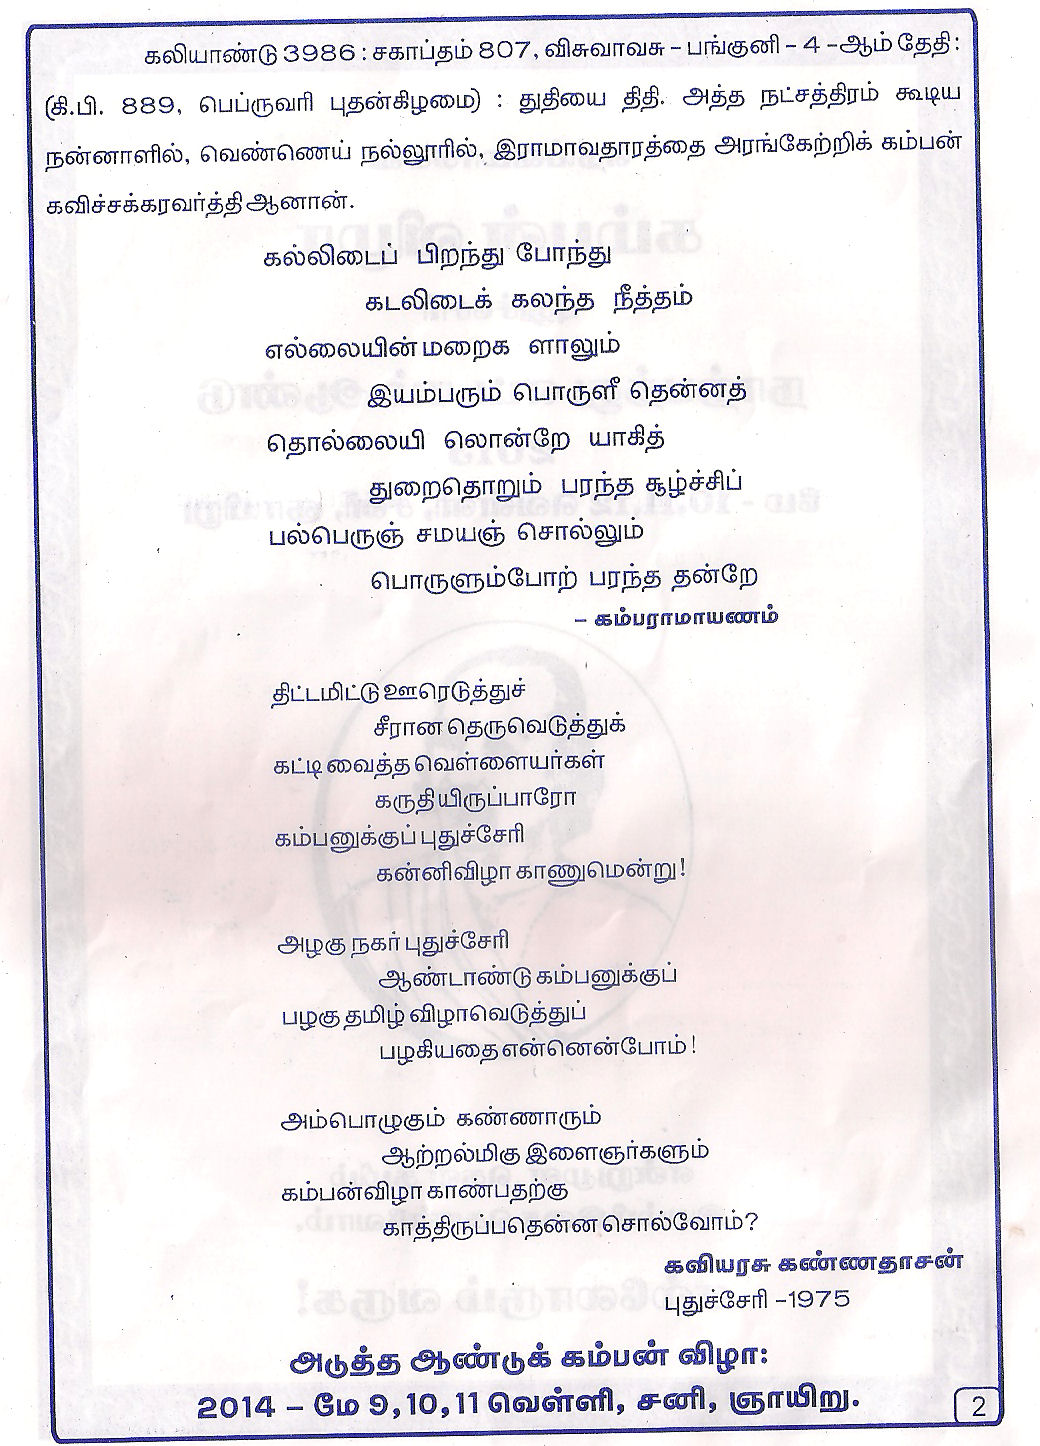 கலியாண்டு 3986 : சகாப்தம் 807, விசுவாவசு – பங்குனி – 4 –ஆம் தேதி :
(கி.பி. 889, பெப்ருவரி புதன்கிழமை) : துதியை திதி. அத்த நட்சத்திரம் கூடிய
நன்னாளில், வெண்ணெய் நல்லூரில், இராமாவதாரத்தை அரங்கேற்றிக் கம்பன்
கவிச்சக்கரவர்த்தி ஆனான்.
கல்லிடைப் பிறந்து போந்து
கடலிடைக் கலந்த நீத்தம்
எல்லையின் மறைக ளாலும்
இயம்பரும் பொருளீ தென்னத்
தொல்லையி லொன்றே யாகித்
துறைதொறும் பரந்த சூழ்ச்சிப்
பல்பெருஞ் சமயஞ் சொல்லும்
பொருளும்போற் பரந்த தன்றே
– கம்பராமாயணம்
திட்டமிட்டு ஊரெடுத்துச்
சீரான தெருவெடுத்துக்
கட்டி வைத்த வெள்ளையர்கள்
கருதியிருப்பாரோ
கம்பனுக்குப் புதுச்சேரி
கன்னிவிழா காணுமென்று!
அழகு நகர் புதுச்சேரி
ஆண்டாண்டு கம்பனுக்குப்
பழகு தமிழ் விழாவெடுத்துப்
பழகியதை என்னென்போம்!
அம்பொழுகும் கண்ணாரும்
ஆற்றல்மிகு இளைஞர்களும்
கம்பன்விழா காண்பதற்கு
காத்திருப்பதென்ன சொல்வோம்?
கவியரசு கண்ணதாசன்
புதுச்சேரி –1975
அடுத்த ஆண்டுக் கம்பன் விழா:
2014 – மே 9,10,11 வெள்ளி, சனி, ஞாயிறு.
2